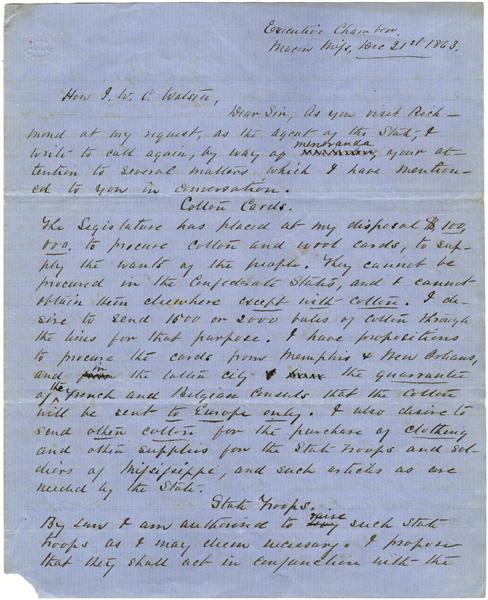 Executive Chamber.
Macon Miss, Dec 21st 1863.
Hon J. W. C. Watson,
Dear Sir, As you visit Rich-
mond at my request, as the agent of the State, I
write to call again, by way of memoranda your at-
tention to several matters which I have mention-
ed to you in conversation.
Cotton Cards.
The Legislature has placed at my disposal $100,
000, to procure cotton and wool cards, to sup-
ply the wants of the people. They cannot be
procured in the Confederate States, and I cannot
obtain them elsewhere except with cotton. I de-
sire to send 1500 or 2000 bales of cotton through
the lines for that purpose. I have propositions
to procure the cards from Memphis & New Orleans,
and in the latter city the guarantee
of the French and Belgian Consuls that the cotton
will be sent to Europe only. I also desire to
send other cotton for the purchase of clothing
and other supplies for the State troops and sol-
diers of Mississippi, and such articles as are
needed by the State.
State Troops.
By law I am authorised to raise such State
troops as I may deem necessary. I propose
that they shall act in conjunction with the